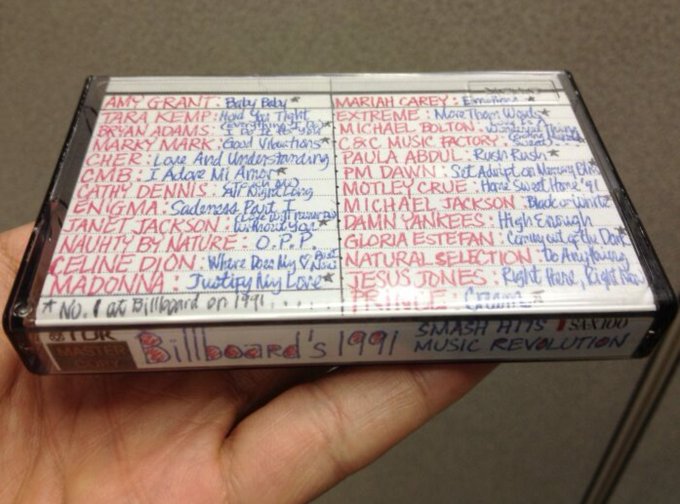 AMY GRANT: Baby Baby *
TARA KEMP: Hold You Tight
BRYAN ADAMS: (Everything I Do) I Do It For You *
MARKY MARK: Good Vibrations *
CHER: Love And Understanding
CMB: I Adore Mi Amor *
CATHY DENNIS: Right Long
ENIGMA: Sadeness Part I
JANET JACKSON: Without You *
NAUHTY BY NATURE: O.P.P.
CELINE DION: Where Does My ♡ Beat Now
MADONNA: Justify My Love *
* No. 1 at Billboard on 1991 ....
MARIAH CAREY: Emotions *
EXTREME: More Than Words *
MICHAEL BOLTON: Wonderful Thing
C&C MUSIC FACTORY:
PAULA ABDUL: Rush Rush *
PM DAWN: Set Adript on Memory Bliss
MOTLEY CRUE: Home Sweet Home '91
MICHAEL JACKSON: Black or White
DAMN YANKEES: High Enough
GLORIA ESTEFAN: Coming out of the Dark
NATURAL SELECTION: Do Anything
JESUS JONES: Right Here, Right Now
PRINCE: Cream *
TDK
MASTER
Billboard's 1991
SMASH HITS
MUSIC REVOLUTION
SA-X100